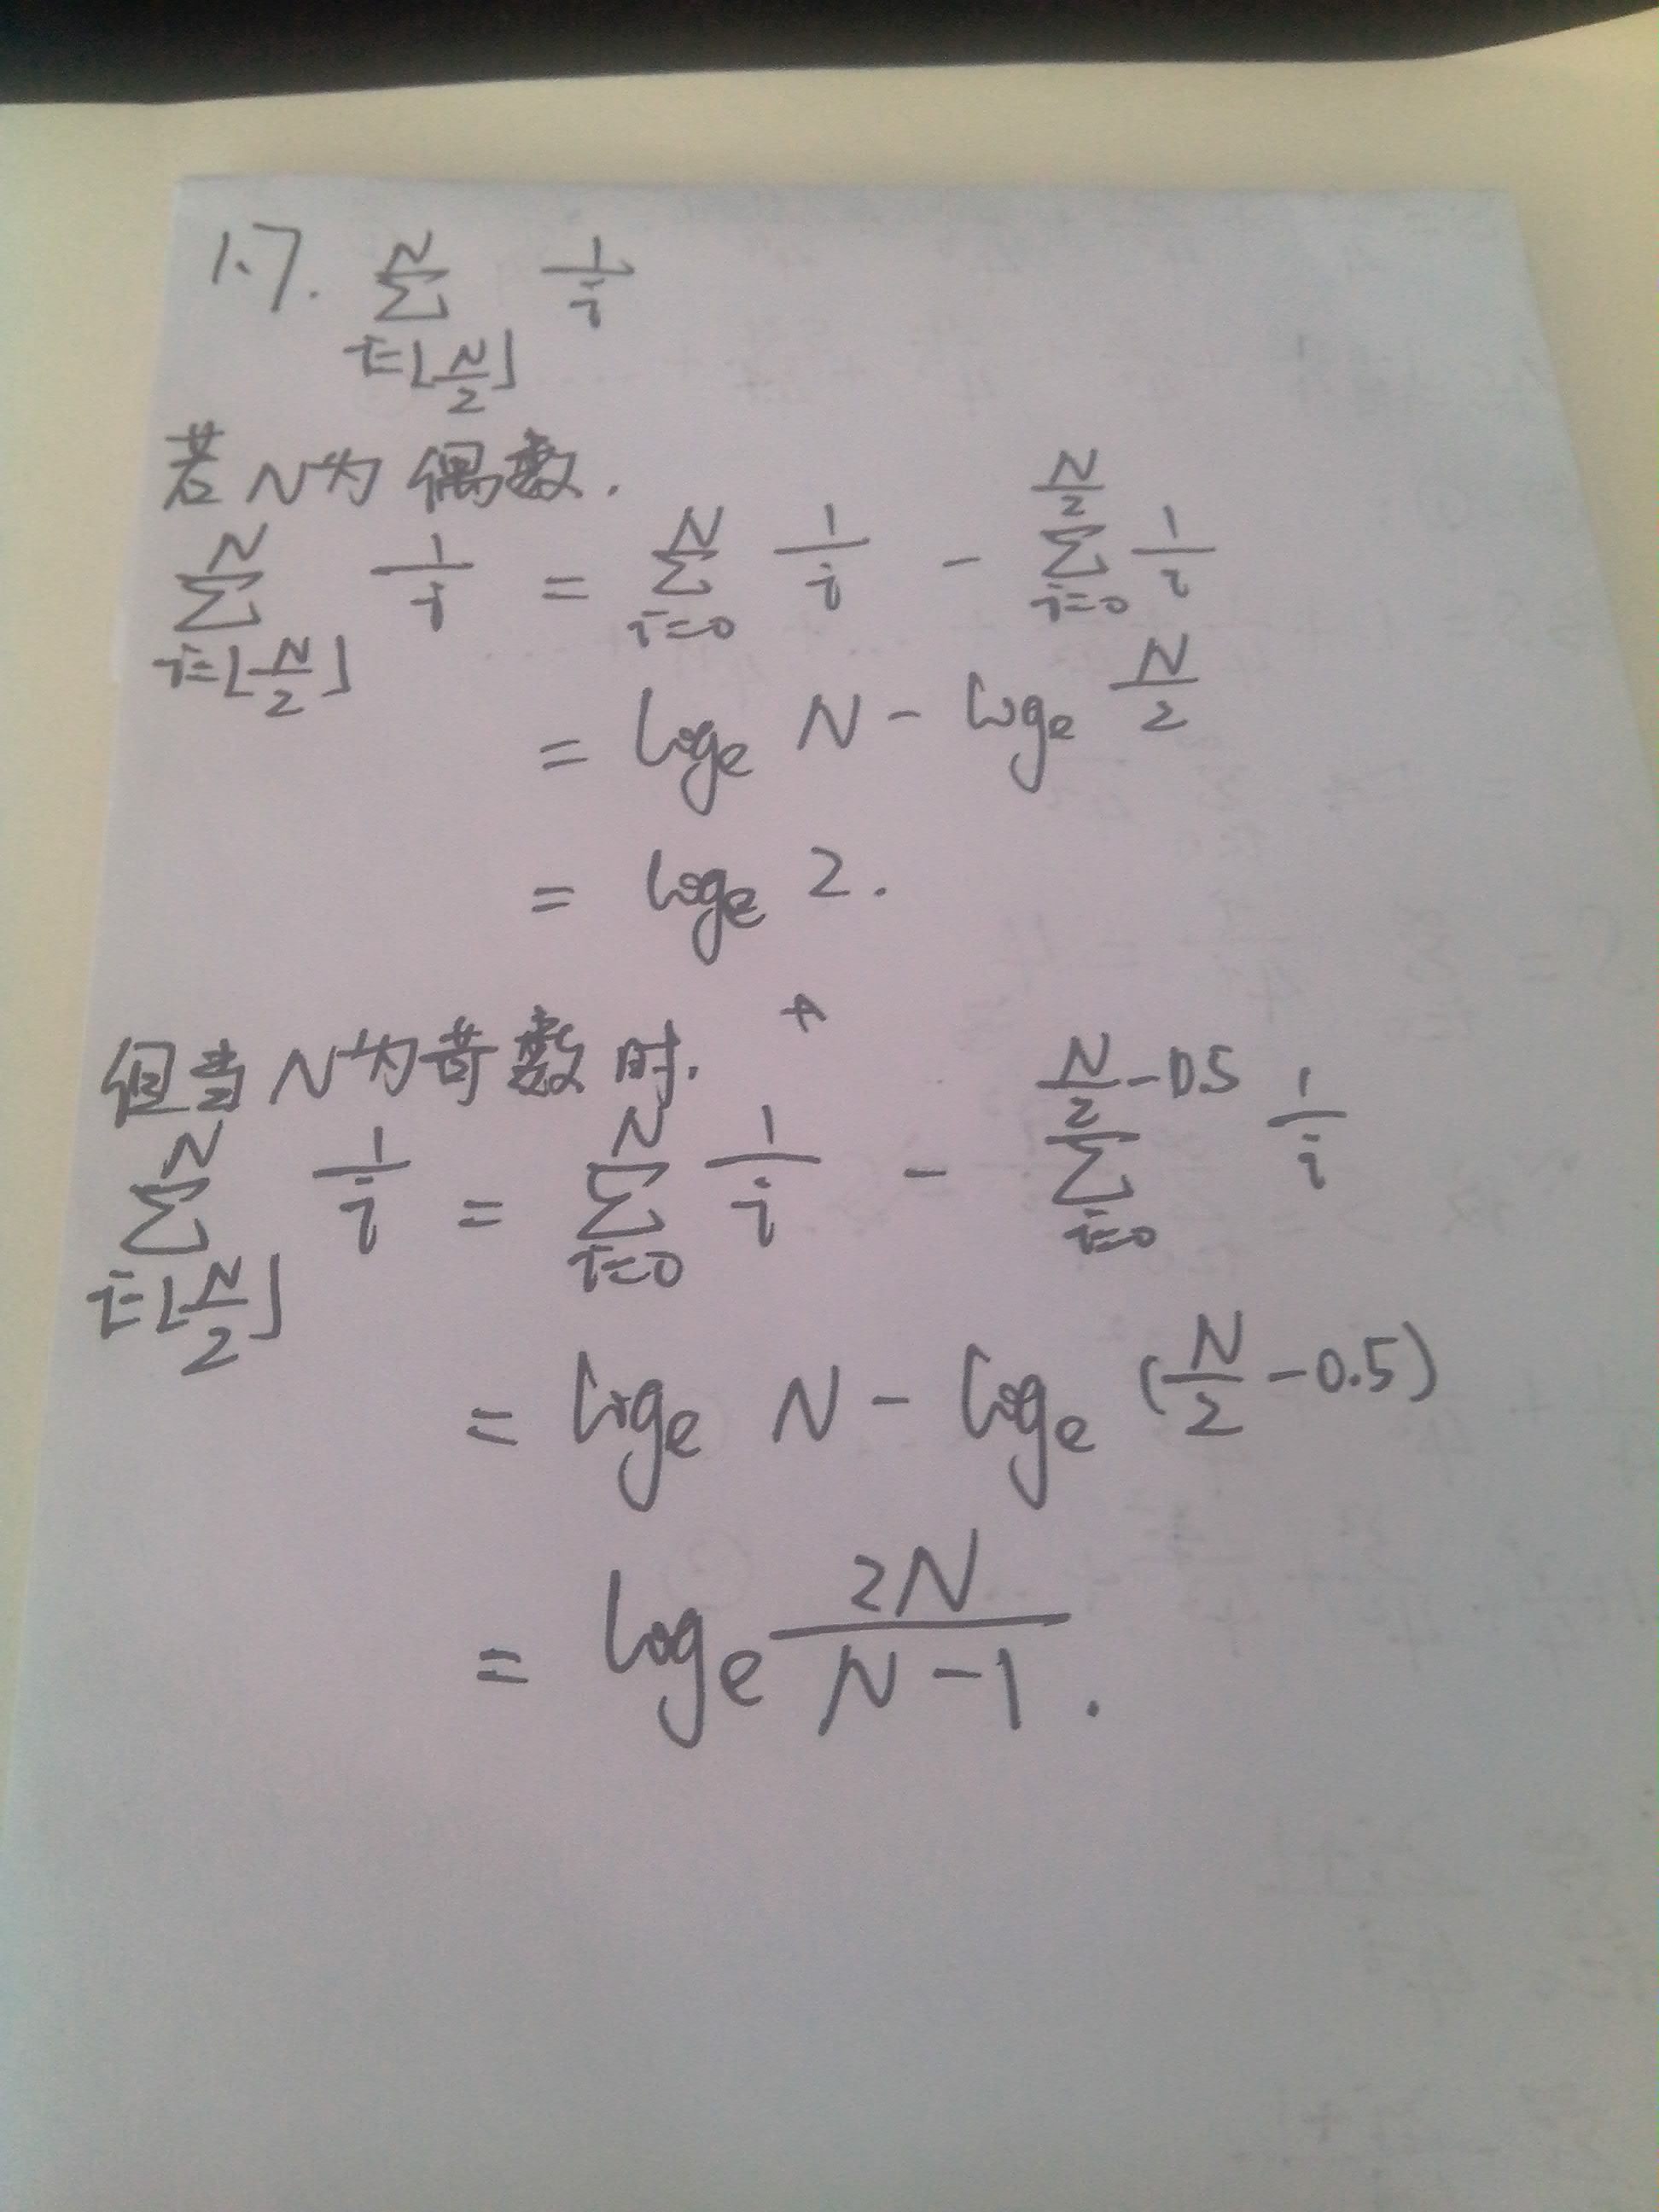 1.7. $\sum_{i=\lfloor \frac{N}{2} \rfloor}^{N} \frac{1}{i}$
若N为偶数.
$\sum_{i=\lfloor \frac{N}{2} \rfloor}^{N} \frac{1}{i} = \sum_{i=0}^{N} \frac{1}{i} - \sum_{i=0}^{\frac{N}{2}} \frac{1}{i}$
$= \log_e N - \log_e \frac{N}{2}$
$= \log_e 2.$
但当N为奇数时.
$\sum_{i=\lfloor \frac{N}{2} \rfloor}^{N} \frac{1}{i} = \sum_{i=0}^{N} \frac{1}{i} - \sum_{i=0}^{\frac{N}{2}-0.5} \frac{1}{i}$
$= \log_e N - \log_e (\frac{N}{2} - 0.5)$
$= \log_e \frac{2N}{N-1}.$